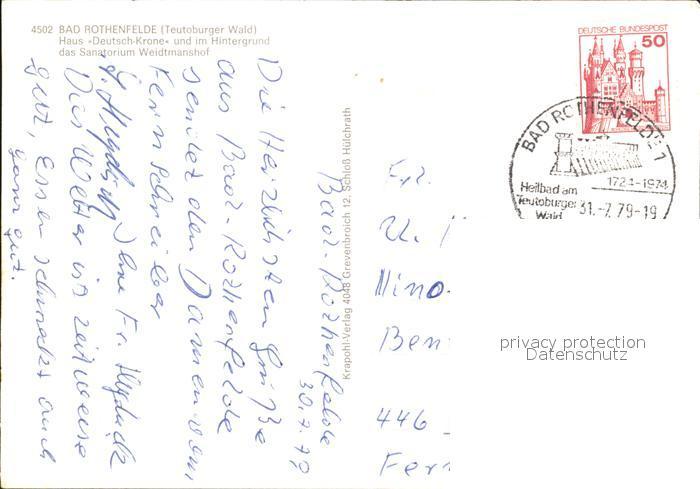 4502 BAD ROTHENFELDE (Teutoburger Wald)
Haus »Deutsch-Krone« und im Hintergrund
das Sanatorium Weidtmanshof
Bad-Rothenfelde
30.7.79
Die herzlichsten Grüße
aus Bad-Rothenfelde
sendet den Damen vom
Fernschreiber
Ihre Fr.
Das Wetter ist zeitweise
gut, Essen schmeckt auch
ganz gut.
Krapohl-Verlag 4048 Grevenbroich 12, Schloß Hülchrath
DEUTSCHE BUNDESPOST
50
BAD ROTHENFELDE 1
1724-1974
Heilbad am
Teutoburger
Wald
31.-7.79-19
Frl.
U.
Mino
Ben
446
Fern
privacy protection
Datenschutz